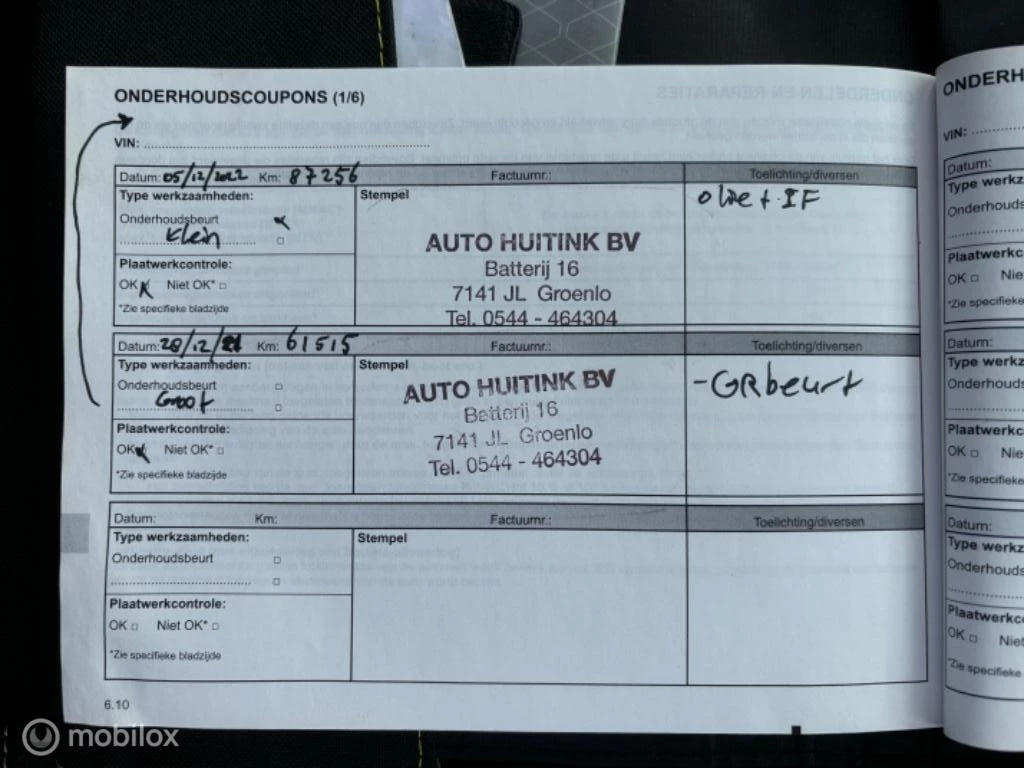 ONDERHOUDSCOUPONS (1/6)
VIN:
Datum: 05/12/2022 Km: 87256 Factuurnr.: Toelichting/diversen
Type werkzaamheden: Stempel
Onderhoudsbeurt
Klein
Plaatwerkcontrole:
OK Niet OK*
*Zie specifieke bladzijde
AUTO HUITINK BV
Batterij 16
7141 JL Groenlo
Tel. 0544 - 464304
olie + IF
Datum: 20/12/21 Km: 61515 Factuurnr.: Toelichting/diversen
Type werkzaamheden: Stempel
Onderhoudsbeurt
Groot
Plaatwerkcontrole:
OK Niet OK*
*Zie specifieke bladzijde
AUTO HUITINK BV
Batterij 16
7141 JL Groenlo
Tel. 0544 - 464304
- GRbeurt
Datum: Km: Factuurnr.: Toelichting/diversen
Type werkzaamheden: Stempel
Onderhoudsbeurt
Plaatwerkcontrole:
OK Niet OK*
*Zie specifieke bladzijde
6.10
ONDERH
VIN:
Datum:
Type werkz
Onderhouds
Plaatwerkc
OK Nie
*Zie specifieke
Datum:
Type werkz
Onderhouds
Plaatwerkc
OK Nie
*Zie specifieke
Datum:
Type werkz
Onderhouds
Plaatwerkco
OK Niet
*Zie specifieke
mobilox